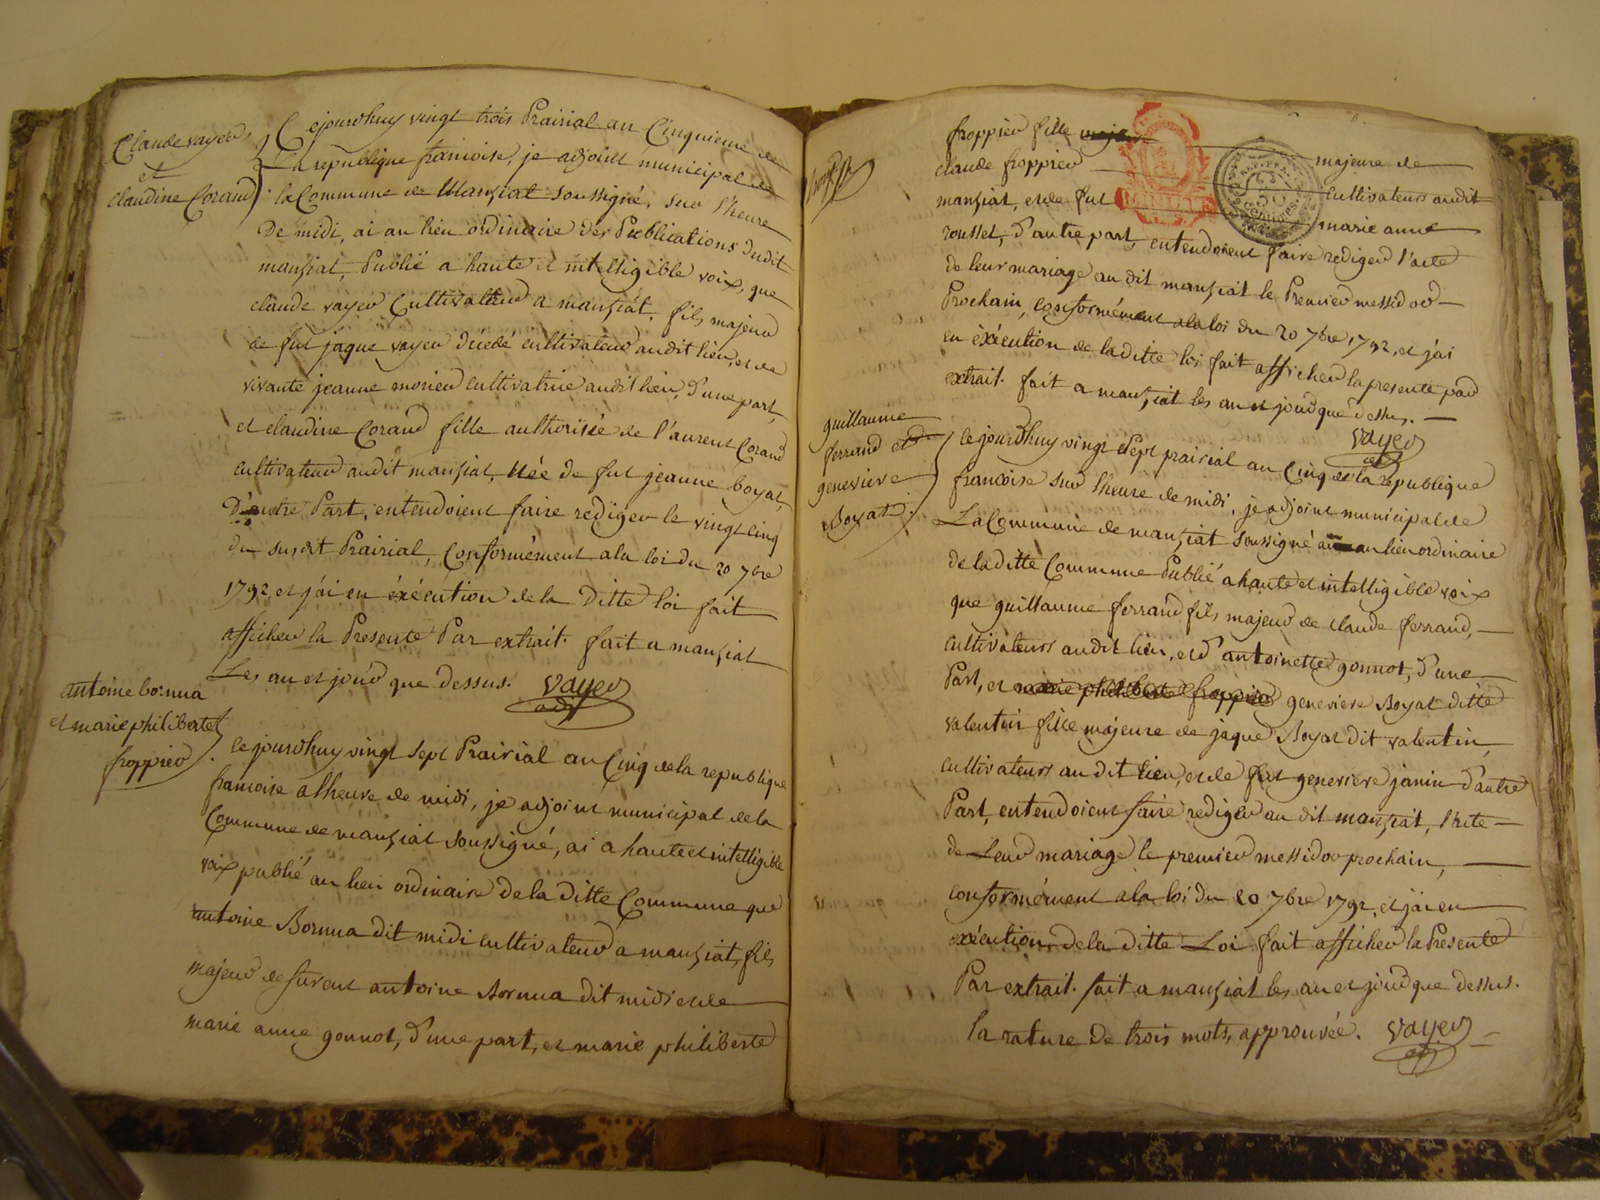 Claude vayer
et
claudine Corand
Cejourdhuy vingt trois Prairial an Cinquieme de
La republique francoise, je adjoint municipal de
la Commune de Manziat soussigné, sur l'heure
De midi, ai au lieu ordinaire des Publications dudit
manziat, Publié a haute et intelligible voix, que
claude vayer Cultivateur a manziat, fils majeur
de fut jaque vayer décédé cultivateur audit lieu, et de
vivante jeanne morier cultivatrice audit lieu, d'une part,
et claudine Corand fille authorisée de l'aurent Corand
cultivateur audit manziat, Née de fut jeanne boyat,
D'autre Part, entendoient faire rediger le vingt cinq
du susdit Prairial, Conformément a la loi du 20 7bre
1792, et j'ai en éxécution de la Ditte loi fait
afficher la Presente Par extrait. fait a manziat
Les an et jour que dessus. vayer
adj
antoine bornua
et marie philiberte
froppier
Cejourdhuy vingt sept Prairial an Cinq de la republique
francoise a lheure de midi, je adjoint municipal de la
Commune de manziat soussigné, ai a haute et intelligible
voix publié au lieu ordinaire de la ditte Commune que
antoine Bornua dit midi cultivateur a manziat, fils
majeur de survent antoine Bornua dit midi et de
marie anne gonnot, d'une part, et marie philiberte
froppier fille maje majeure de
claude froppier cultivateurs audit
manziat, et de fut marie anne
rousset, d'autre part, entendoient faire rediger l'acte
de leur mariage au dit manziat le Premier messidor
Prochain, conformément a la loi du 20 7bre 1792, et j'ai
en éxécution de la ditte loi fait afficher la presente par
extrait. fait a manziat les an et jour que dessus.
vayer
adj
guillaume
ferrand et
genevieve
Boyat.
Cejourdhuy vingt Sept prairial an Cinq de la republique
francoise sur lheure de midi, je adjoint municipal de
La Commune de manziat soussigné ai au lieu ordinaire
de la ditte Commune Publié a haute et intelligible voix
que guillaume ferrand fils majeur de claude ferrand,
cultivateurs audit lieu, et d'antoinette gonnot, d'une
Part, et marie philiberte froppier genevieve Boyat ditte
valentin fille majeure de jaque Boyat dit valentin,
cultivateurs au dit lieu, et de fut genevieve janin d'autre
Part, entendoient faire rediger au dit manziat, l'acte
de Leur mariage le premier messidor prochain,
conformément a la loi du 20 7bre 1792, et j'ai en
exécution de la ditte Loi fait afficher la Presente
Par extrait. fait a manziat les an et jour que dessus.
la rature de trois mots, approuvée. vayer
adj